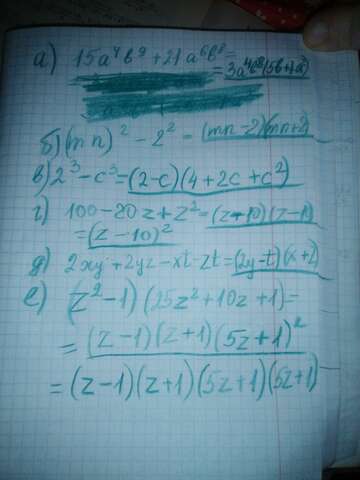 а) 15a⁴b⁹ + 21a⁶b⁸ =
= 3a⁴b⁸(5b+7a²)
б) (mn)² - 2² = (mn-2)(mn+2)
в) 2³ - c³ = (2-c)(4+2c+c²)
г) 100-20z+z² = (z-10)(z-1)
= (z-10)²
д) 2xy+2yz-xt-zt = (2y-t)(x+z)
е) (z²-1)(25z²+10z+1) =
= (z-1)(z+1)(5z+1)²
= (z-1)(z+1)(5z+1)(5z+1)